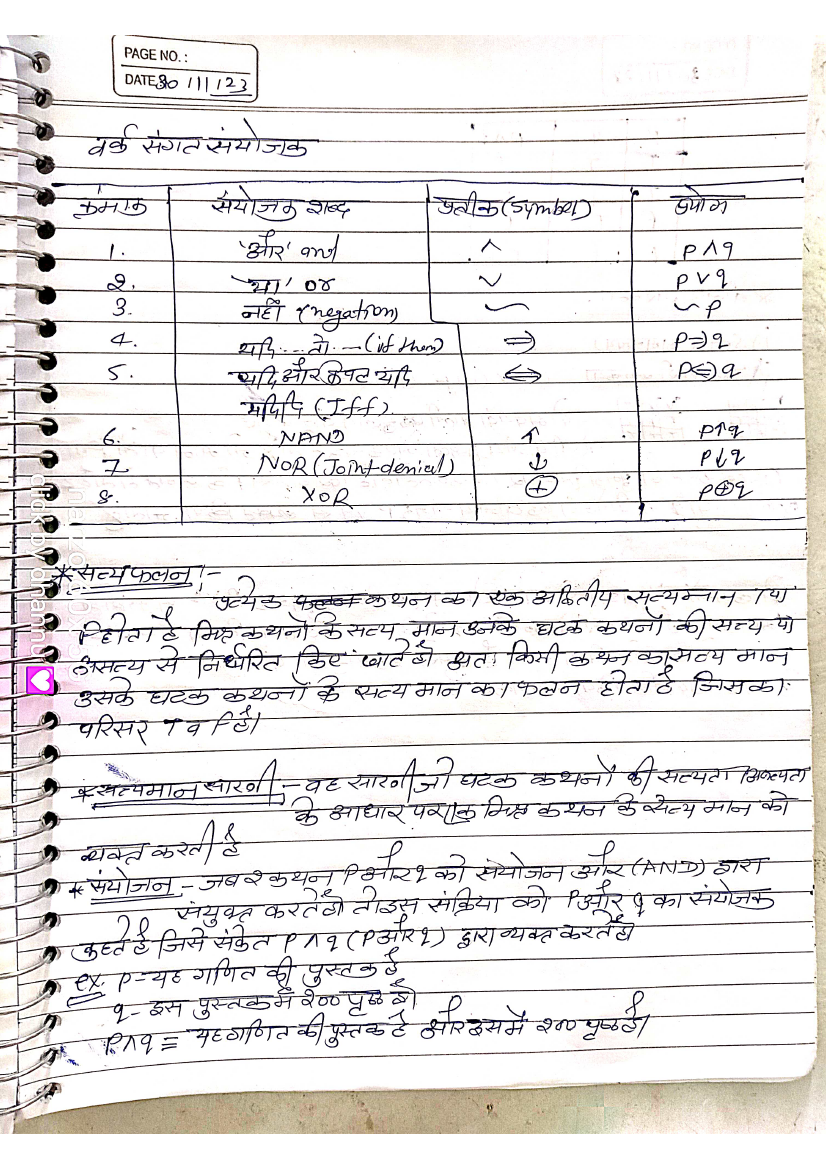 PAGE NO.:
DATE 30/11/23
तर्क संगत संयोजक
क्रमांक संयोजक शब्द प्रतीक (Symbol) उपयोग
1. 'और' and ∧ P∧q
2. 'या' or ∨ P∨q
3. नहीं (negation) ~ ~P
4. यदि...तो... (if then) ⇒ P⇒q
5. यदि और केवल यदि ⇔ P⇔q
यदिदि (Iff)
6. NAND ↑ P↑q
7. NOR (Joint-denial) ↓ P↓q
8. XOR ⊕ P⊕q
* सत्य फलन :-
प्रत्येक कथन का एक अद्वितीय सत्यमान T या
F होता है मिश्र कथनों के सत्य मान उनके घटक कथनों की सत्य या
असत्य से निर्धारित किए जाते है अतः किसी कथन का सत्य मान
उसके घटक कथनों के सत्य मान का फलन होता है जिसका
परिसर T व F है।
* सत्यमान सारणी :- वह सारणी जो घटक कथनों की सत्यता असत्यता
के आधार पर मिश्र कथन के सत्य मान को
व्यक्त करती है
* संयोजन :- जब २ कथन P और q को संयोजन और (AND) द्वारा
संयुक्त करते है तो इस संक्रिया को P और q का संयोजक
कहते है जिसे संकेत P∧q (P और q) द्वारा व्यक्त करते है
ex. P- यह गणित की पुस्तक है
q- इस पुस्तक में २०० पृष्ठ है
P∧q ≡ यह गणित की पुस्तक है और इसमें २०० पृष्ठ है।